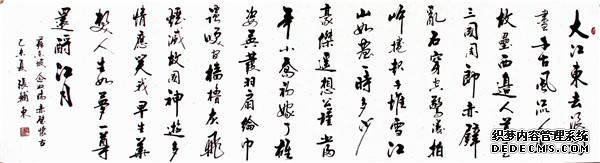 大江東去浪
盡千古風流人
故壘西邊人道
三國周郎赤壁
亂石穿空驚濤拍
岸捲起千堆雪江
山如畫一時多少
豪傑遙想公瑾當
年小喬初嫁了雄
姿英發羽扇綸巾
談笑間檣櫓灰飛
煙滅故國神遊多
情應笑我早生華
髮人生如夢一尊
還酹江月
蘇東坡念奴嬌赤壁懷古
乙未夏張東
织梦内容管理系统
DEDECMS.COM